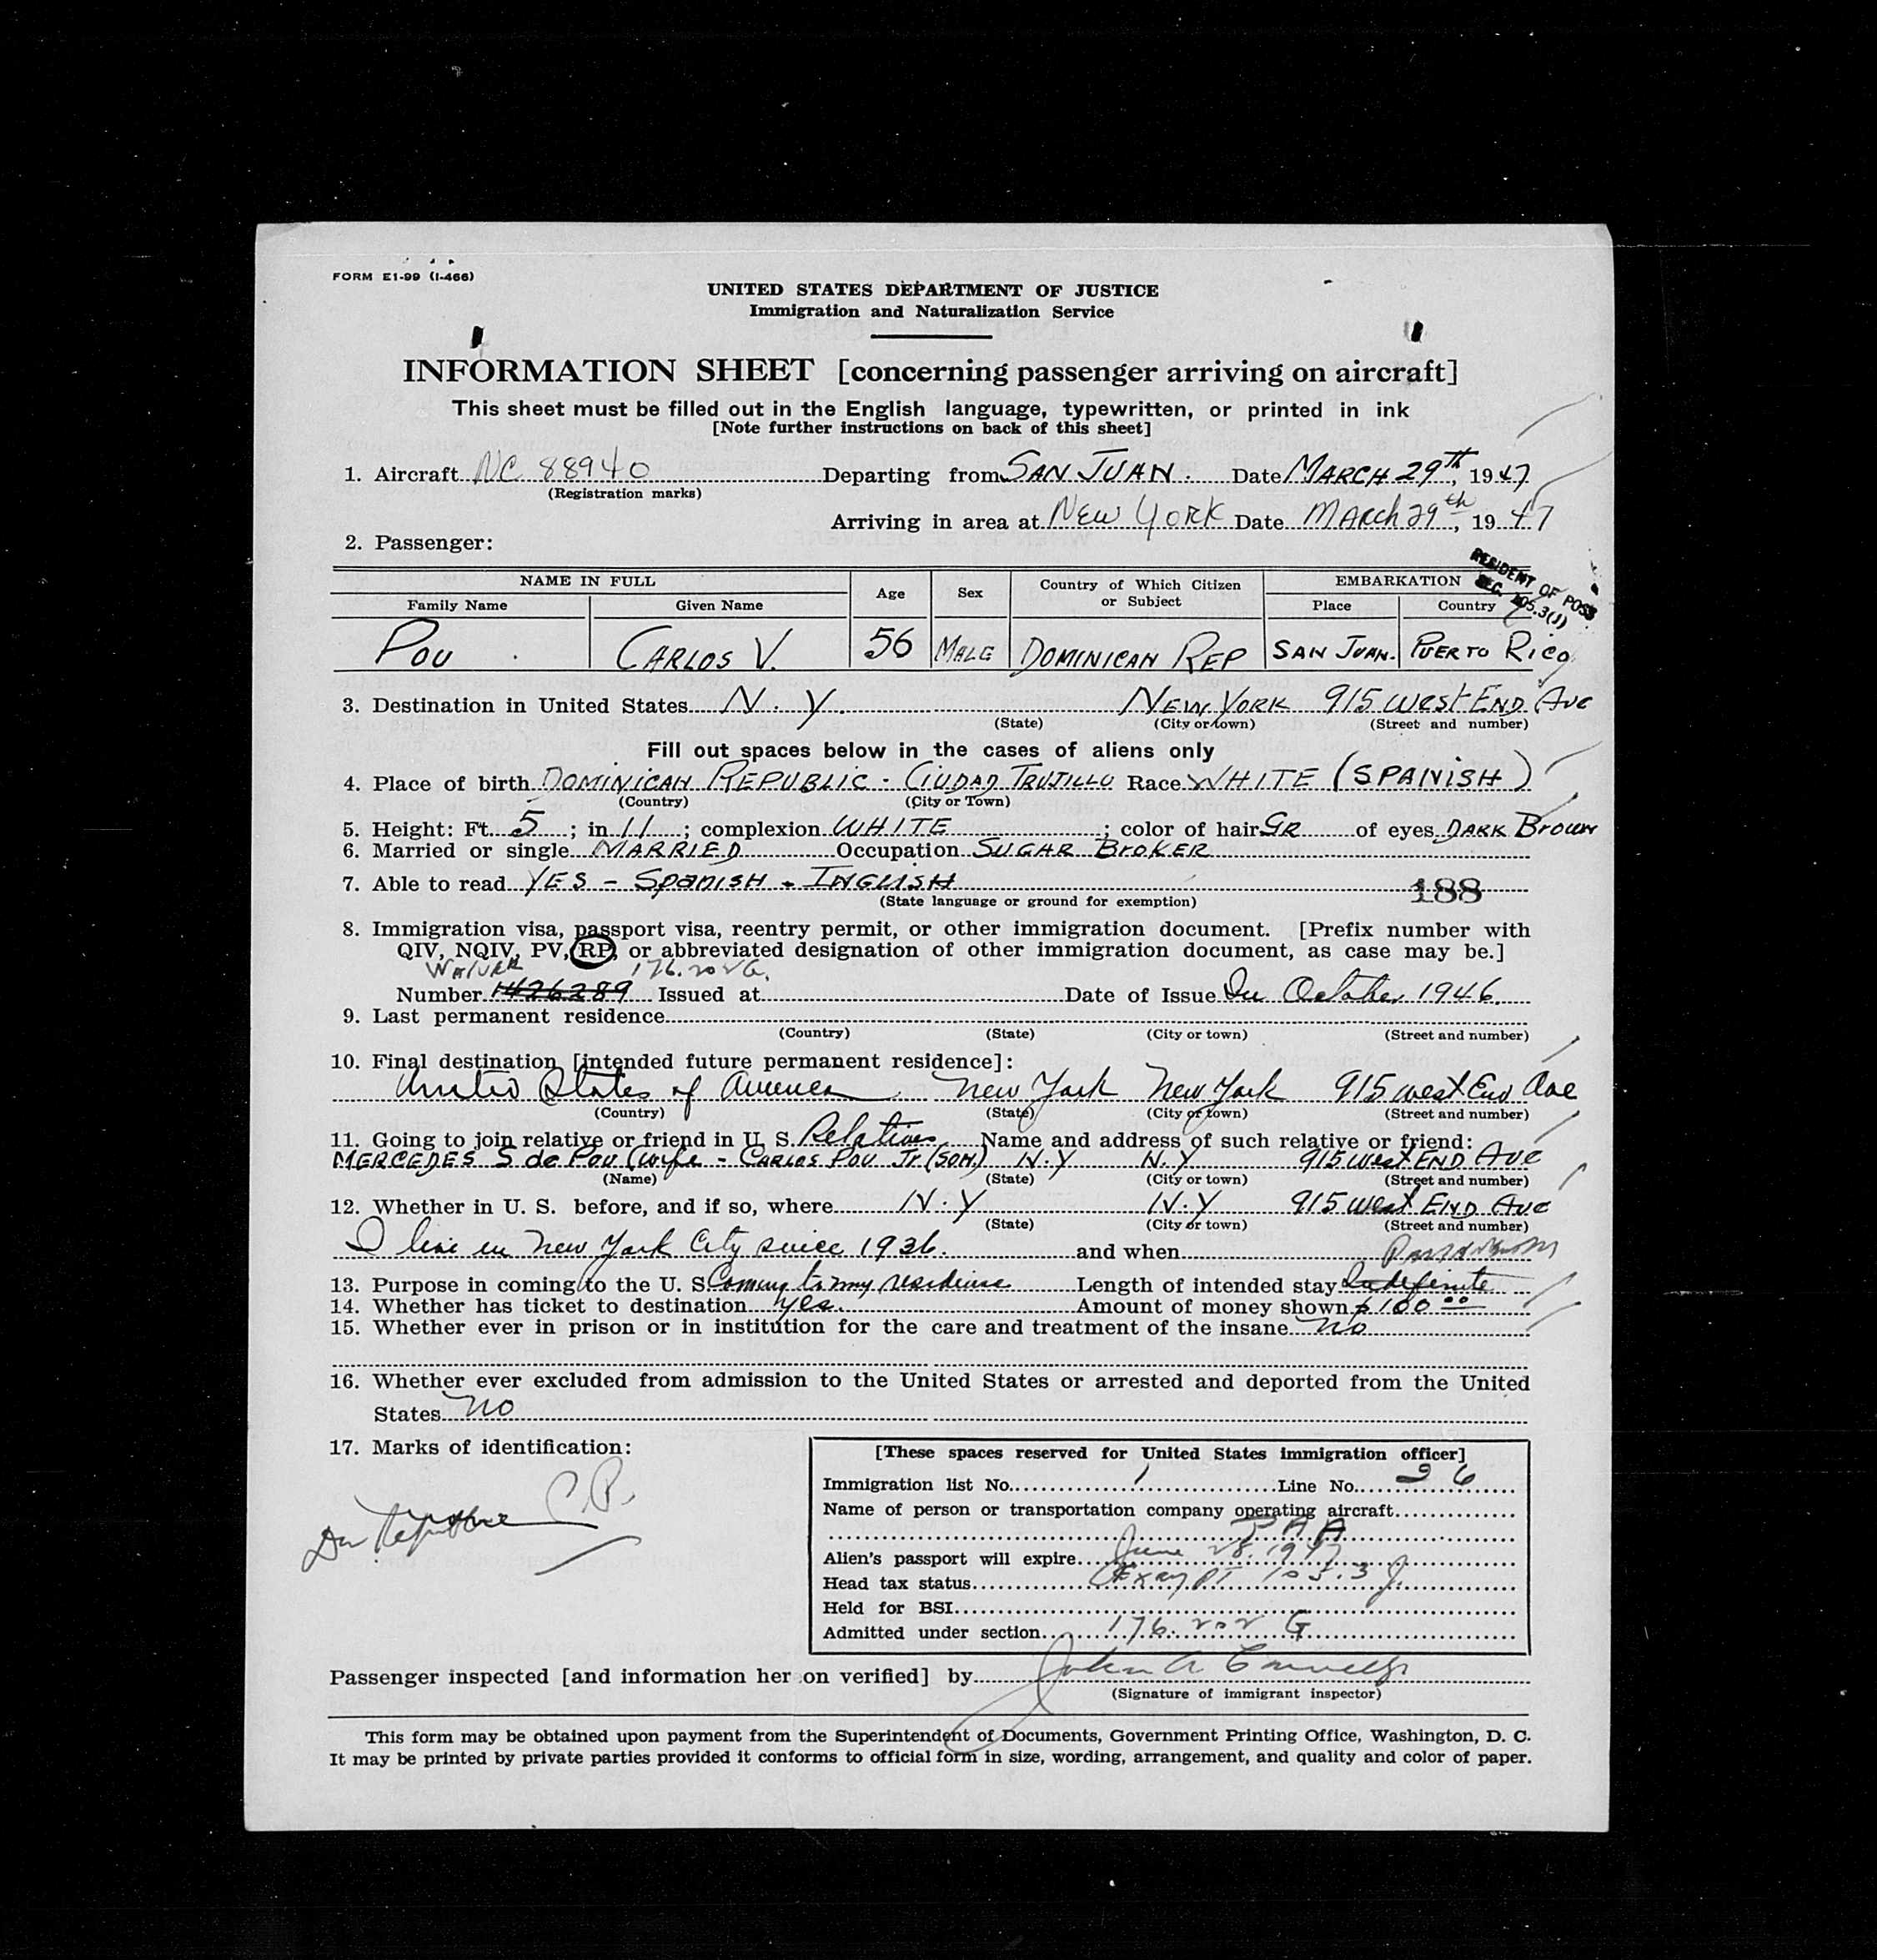 FORM E1-99 (I-466)
UNITED STATES DEPARTMENT OF JUSTICE
Immigration and Naturalization Service
INFORMATION SHEET [concerning passenger arriving on aircraft]
This sheet must be filled out in the English language, typewritten, or printed in ink
[Note further instructions on back of this sheet]
1. Aircraft NC 88940 Departing from SAN JUAN. Date MARCH 29th, 1947
(Registration marks)
Arriving in area at New York Date March 29th, 1947
2. Passenger:
RESIDENT OF POSS
SEC. 105.3(J)
NAME IN FULL Age Sex Country of Which Citizen or Subject EMBARKATION
Family Name Given Name Place Country
POU CARLOS V. 56 MALE DOMINICAN REP SAN JUAN. PUERTO RICO
3. Destination in United States N. Y. NEW YORK 915 West END Ave
(State) (City or town) (Street and number)
Fill out spaces below in the cases of aliens only
4. Place of birth DOMINICAN REPUBLIC - CIUDAD TRUJILLO Race WHITE (SPANISH)
(Country) (City or Town)
5. Height: Ft. 5; in 11; complexion WHITE; color of hair GR of eyes DARK Brown
6. Married or single MARRIED Occupation SUGAR BROKER
7. Able to read YES - SPANISH - INGLISH
(State language or ground for exemption)
188
8. Immigration visa, passport visa, reentry permit, or other immigration document. [Prefix number with
QIV, NQIV, PV, RP, or abbreviated designation of other immigration document, as case may be.]
176.202 G.
Number 1426289 Issued at Date of Issue In October 1946
9. Last permanent residence
(Country) (State) (City or town) (Street and number)
10. Final destination [intended future permanent residence]:
United States of America New York New York 915 West End Ave
(Country) (State) (City or town) (Street and number)
11. Going to join relative or friend in U. S. Relatives Name and address of such relative or friend:
MERCEDES S de POU (wife - CARLOS POU Jr (SON.) N.Y N.Y 915 West END Ave
(Name) (State) (City or town) (Street and number)
12. Whether in U. S. before, and if so, where N.Y N.Y 915 West END Ave
(State) (City or town) (Street and number)
I live in New York City since 1936. and when
13. Purpose in coming to the U. S. Coming to my residence Length of intended stay Indefinite
14. Whether has ticket to destination yes. Amount of money shown $100.00
15. Whether ever in prison or in institution for the care and treatment of the insane no
16. Whether ever excluded from admission to the United States or arrested and deported from the United
States no
17. Marks of identification:
C.P.
[These spaces reserved for United States immigration officer]
Immigration list No. 1 Line No. 26
Name of person or transportation company operating aircraft
PAA
Alien's passport will expire June 28, 1947
Head tax status Exempt 105.3 J.
Held for BSI
Admitted under section 176.202 G
Passenger inspected [and information hereon verified] by John A
(Signature of immigrant inspector)
This form may be obtained upon payment from the Superintendent of Documents, Government Printing Office, Washington, D. C.
It may be printed by private parties provided it conforms to official form in size, wording, arrangement, and quality and color of paper.